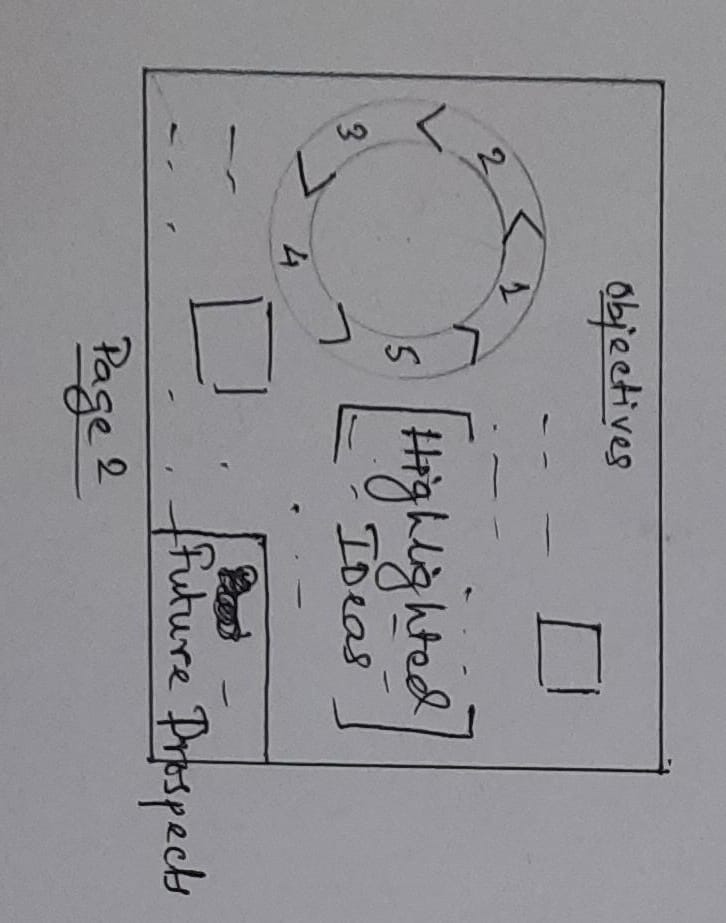 Objectives
1
2
3
4
5
Highlighted
IDeas
Future Prospects
Page 2